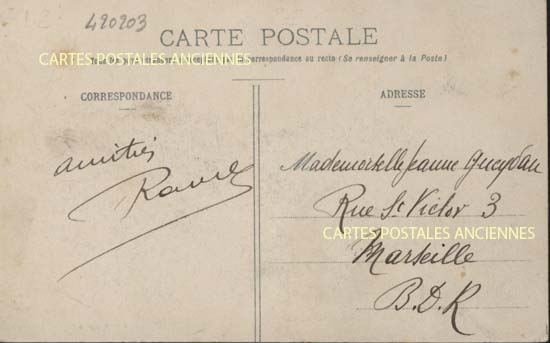 420203
CARTE POSTALE
CARTES POSTALES ANCIENNES
correspondance au recto (Se renseigner à la Poste)
CORRESPONDANCE
ADRESSE
amitiés
Mademoiselle Jeanne
Rue St Victor 3
CARTES POSTALES ANCIENNES
Marseille
B.D.R